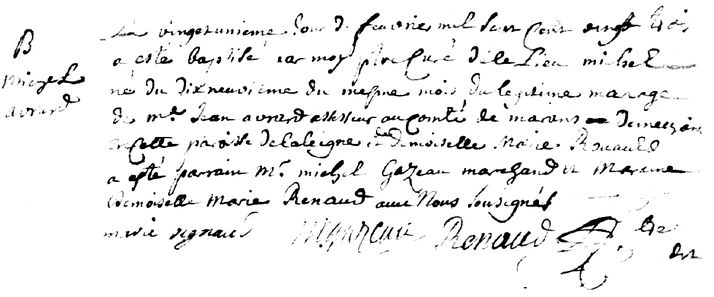 B
michel
avrard
Le vingt unieme Jour de feuvrier mil sept Cent vingt trois
a esté baptisé par moy ptre Curé de ce Lieu michel
né du dixneuvième du mesme mois du legitime mariage
de mr. Jean avrard assesseur au Comté de marans demeurant
en cette paroisse de la leigne et demoiselle Marie Renaud
a esté parrain Mr. michel Gazeau marchand et Maraine
demoiselle Marie Renaud avec Nous Sousignés
marie Renaud